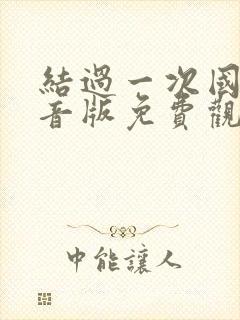 結過一次國
音版免費觀
中能讓人